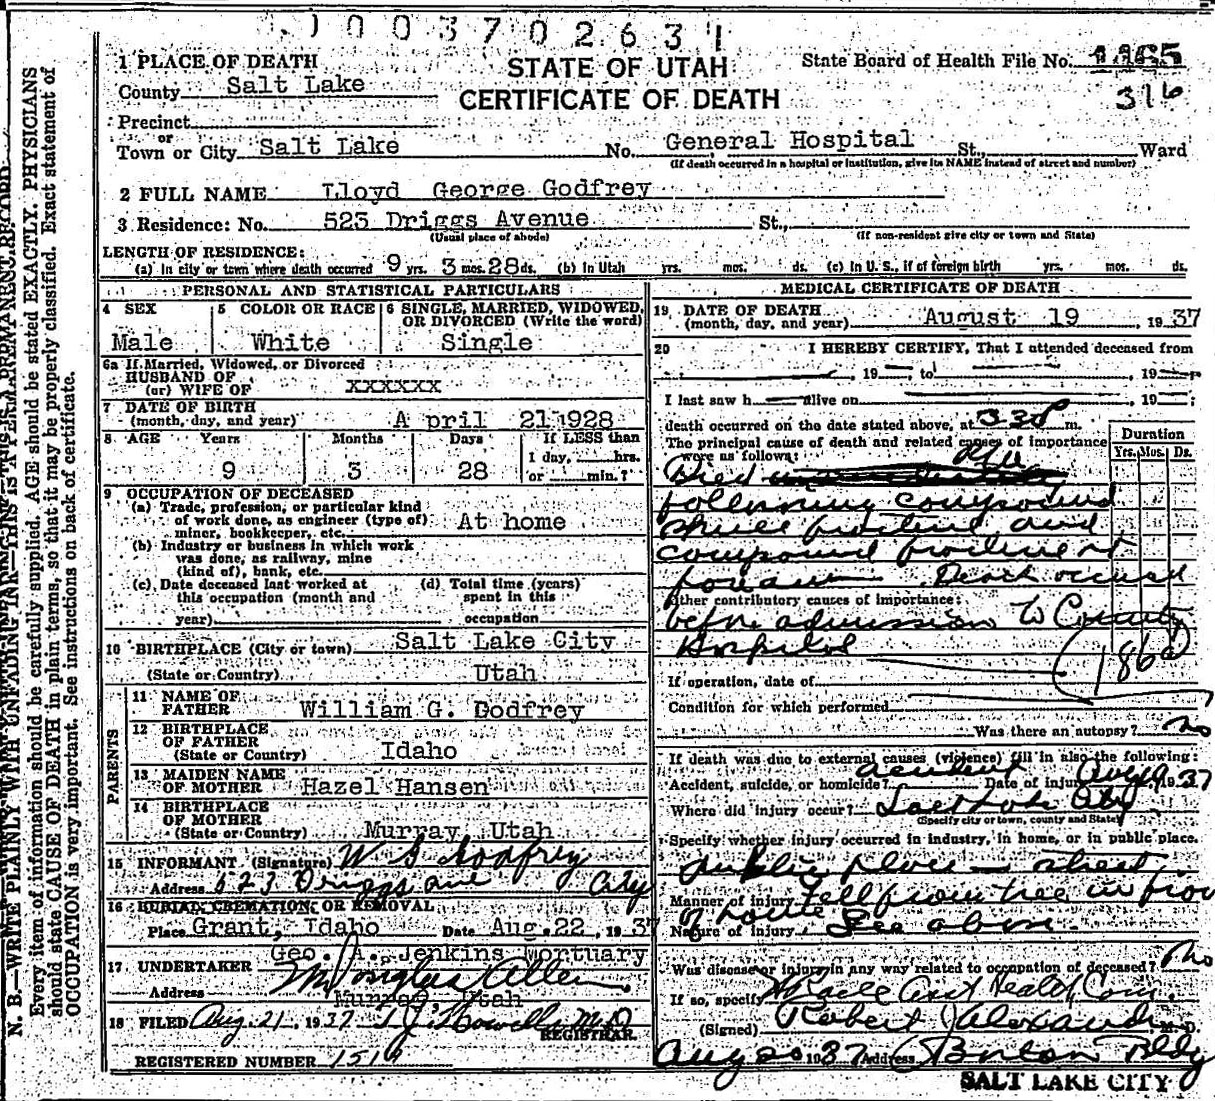 1003702631
1 PLACE OF DEATH
STATE OF UTAH
State Board of Health File No.
County Salt Lake
CERTIFICATE OF DEATH
316
Precinct
or
Town or City Salt Lake No. General Hospital St., Ward
(If death occurred in a hospital or institution, give its NAME instead of street and number)
2 FULL NAME Lloyd George Godfrey
3 Residence: No. 523 Driggs Avenue St.,
(Usual place of abode) (If non-resident give city or town and State)
LENGTH OF RESIDENCE:
(a) In city or town where death occurred 9 yrs. 3 mos. 28 ds. (b) In Utah yrs. mos. ds. (c) In U. S., if of foreign birth yrs. mos. ds.
PERSONAL AND STATISTICAL PARTICULARS
4 SEX 5 COLOR OR RACE 6 SINGLE, MARRIED, WIDOWED,
OR DIVORCED (Write the word)
Male White Single
6a If Married, Widowed, or Divorced
HUSBAND OF
(or) WIFE OF xxxxxx
7 DATE OF BIRTH
(month, day, and year) April 21 1928
8 AGE Years Months Days If LESS than
1 day, hrs.
9 3 28 or min.?
9 OCCUPATION OF DECEASED
(a) Trade, profession, or particular kind
of work done, as engineer (type of) At home
miner, bookkeeper, etc.
(b) Industry or business in which work
was done, as railway, mine
(kind of), bank, etc.
(c) Date deceased last worked at (d) Total time (years)
this occupation (month and spent in this
year) occupation
10 BIRTHPLACE (City or town) Salt Lake City
(State or Country) Utah
PARENTS
11 NAME OF
FATHER William G. Godfrey
12 BIRTHPLACE
OF FATHER
(State or Country) Idaho
13 MAIDEN NAME
OF MOTHER Hazel Hansen
14 BIRTHPLACE
OF MOTHER
(State or Country) Murray, Utah
15 INFORMANT (Signature) W G Godfrey
Address 523 Driggs ave City
16 BURIAL, CREMATION, OR REMOVAL
Place Grant, Idaho Date Aug. 22, 1937
Geo. A. Jenkins Mortuary
17 UNDERTAKER M Douglas Allen
Address Murray, Utah
18 FILED Aug. 21, 1937 T J Howells M D
REGISTRAR
REGISTERED NUMBER
MEDICAL CERTIFICATE OF DEATH
19 DATE OF DEATH
(month, day, and year) August 19, 1937
20 I HEREBY CERTIFY, That I attended deceased from
, 19 to , 19
I last saw h alive on , 19 ;
death occurred on the date stated above, at 3 30 P m.
The principal cause of death and related causes of importance
were as follows:
Duration
Yrs. Mos. Ds.
Died
following compound
skull fracture and
compound fracture rt
forearm Death occured
Other contributory causes of importance:
before admission to County
Hospital
186a
If operation, date of
Condition for which performed
Was there an autopsy? no
If death was due to external causes (violence) fill in also the following:
Accident, suicide, or homicide? accident Date of injury Aug 19, 1937
Where did injury occur? Salt Lake City
(Specify city or town, county and State)
Specify whether injury occurred in industry, in home, or in public place.
public place - street
Manner of injury Fell from tree in front
of house
Nature of injury See above
Was disease or injury in any way related to occupation of deceased? No
If so, specify
(Signed) Robert J Alexander M. D.
Aug 20 1937 Address Boston Bldg
SALT LAKE CITY
N. B.—WRITE PLAINLY WITH UNFADING INK—THIS IS A PERMANENT RECORD
Every item of information should be carefully supplied. AGE should be stated EXACTLY. PHYSICIANS
should state CAUSE OF DEATH in plain terms, so that it may be properly classified. Exact statement of
OCCUPATION is very important. See instructions on back of certificate.